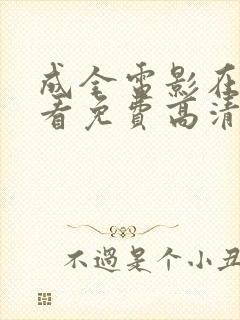 成全雷影在
看免費高清
不過是个小丑